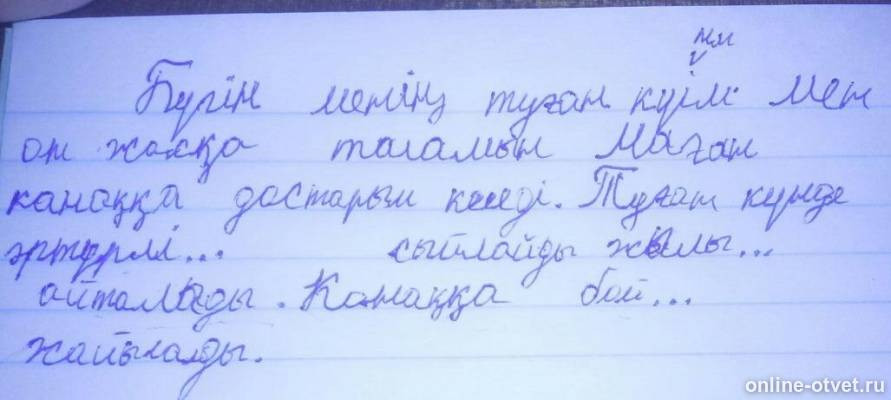 нім
Бүгін менің туған күім мен
он жасқа толамын Маған
канаққа достарым келеді. Туған күнде
әртүрлі... сыйлайды жылы...
айталады. Канаққа бай...
жайылады.
online-otvet.ru